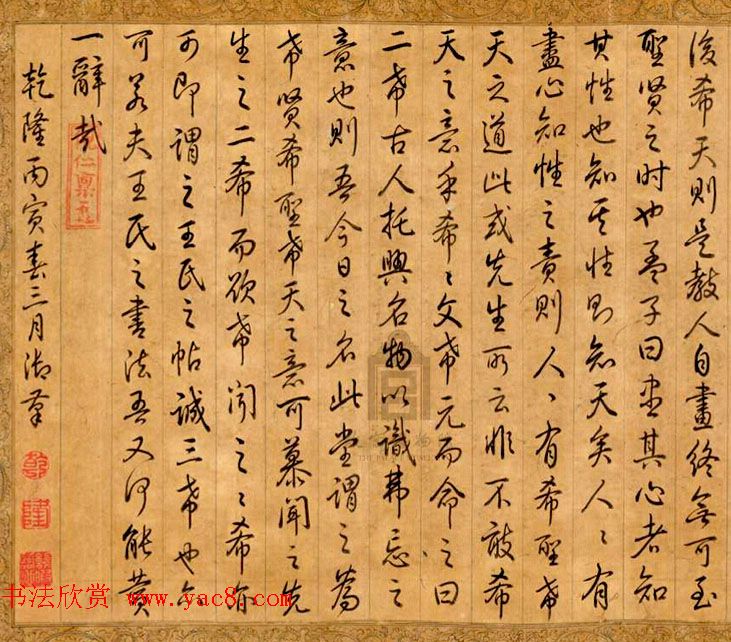 後希天則是教人自畫終無可至
聖賢之時也孟子曰尽其心者知
其性也知其性則知天矣人〻有
盡心知性之責則人〻有希聖希
天之道此或先生所云非不敢希
天之意乎希〻文希元而命之曰
二希古人托興名物以識弗忘之
意也則吾今日之名此堂謂之為
希賢希聖希天之意可慕聞之先
生之二希而欲希聞之〻希亦
可即謂之王氏之帖誠三希也亦
可若夫王氏之書法吾又何能贊
一辭哉
乾隆丙寅春三月御筆
乾
隆
书法欣赏 www.yac8.com